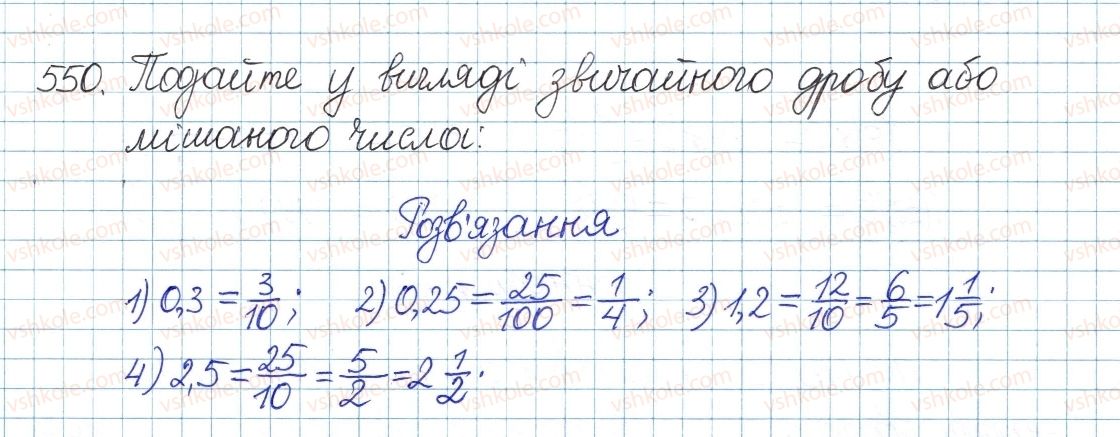 550. Подайте у вигляді звичайного дробу або
мішаного числа:
Розв'язання
1) 0,3 = 3/10; 2) 0,25 = 25/100 = 1/4; 3) 1,2 = 12/10 = 6/5 = 1 1/5;
4) 2,5 = 25/10 = 5/2 = 2 1/2.